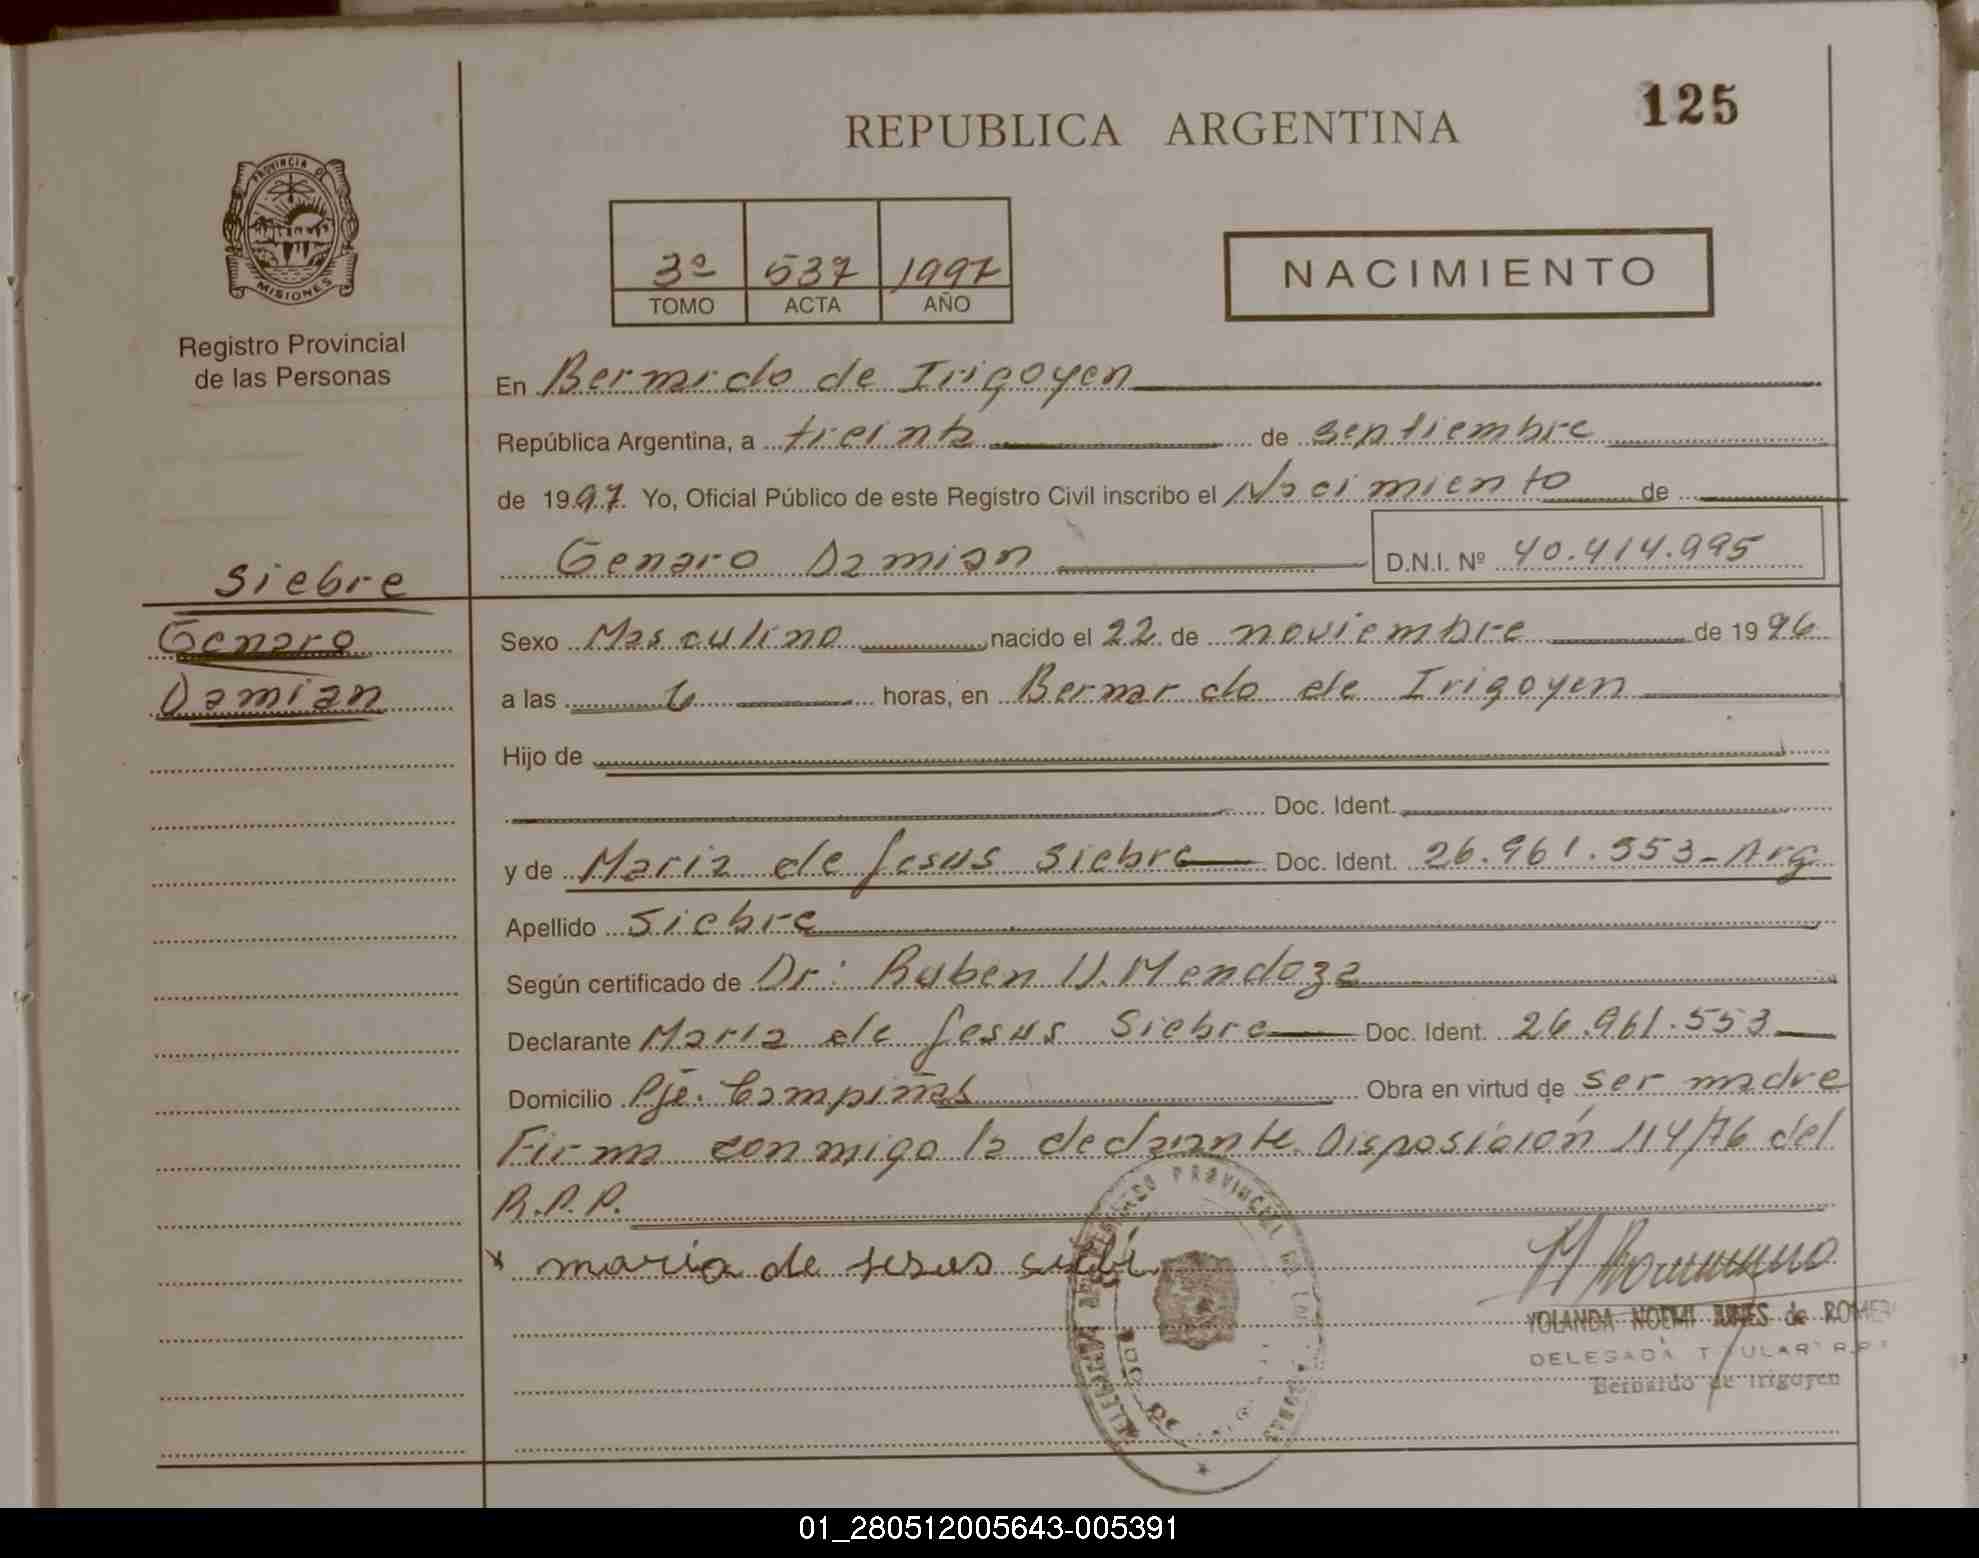 125
REPUBLICA ARGENTINA
PROVINCIA DE
MISIONES
3º 537 1997
TOMO ACTA AÑO
NACIMIENTO
Registro Provincial
de las Personas
En Bernardo de Irigoyen
República Argentina, a treinta de septiembre
de 1997 Yo, Oficial Público de este Registro Civil inscribo el Nacimiento de
Genaro Damian D.N.I. Nº 40.414.995
Siebre
Genaro
Damian
Sexo Masculino nacido el 22 de noviembre de 1996
a las 6 horas, en Bernardo de Irigoyen
Hijo de
Doc. Ident.
y de Maria de Jesus Siebre Doc. Ident. 26.961.553-Arg
Apellido Siebre
Según certificado de Dr: Ruben U. Mendoza
Declarante Maria de Jesus Siebre Doc. Ident. 26.961.553
Domicilio Pje. Campiñas Obra en virtud de ser madre
Firma conmigo la declarante. Disposición 114/76 del
R.P.P.
x maria de Jesus
YOLANDA NOEMI de ROMERO
DELEGADA TITULAR R.P.
Bernardo de Irigoyen
01_280512005643-005391